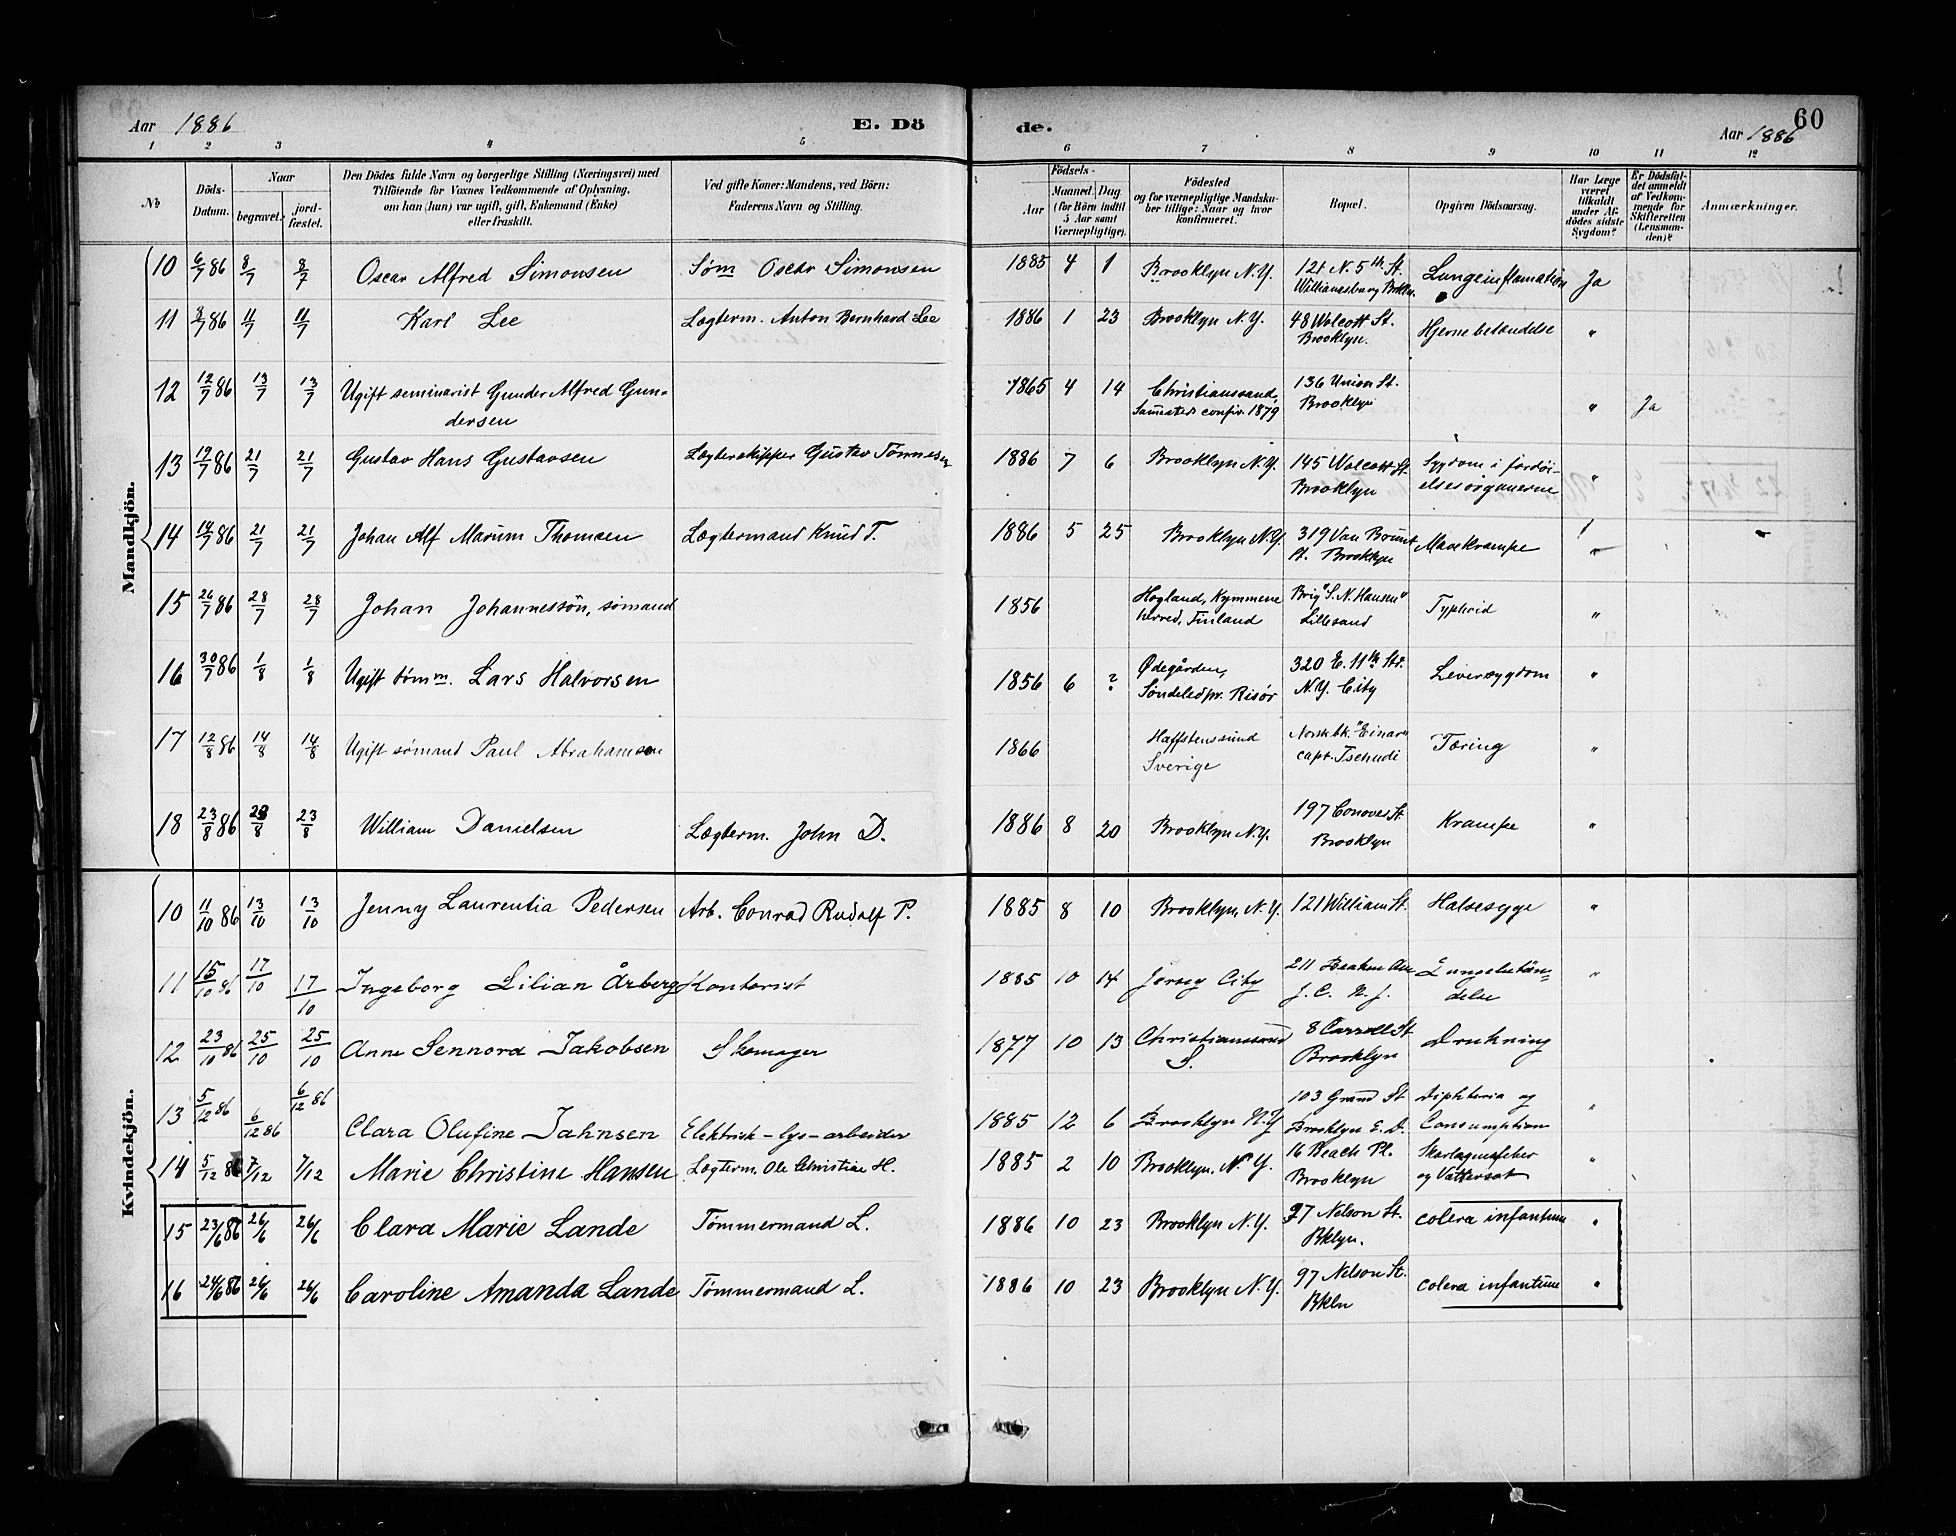 Aar 1886 E. Dö de. Aar 1886 60
1 2 3 4 5 6 7 8 9 10 11 12
№ Döds-Datum. Naar begravet. jord-fæstet. Den Dödes fulde Navn og borgerlige Stilling (Næringsvei) med Tilföiende for Voxnes Vedkommende af Oplysning, om han (hun) var ugift, gift, Enkemand (Enke) eller fraskilt. Ved gifte Koner: Mandens, ved Börn: Faderens Navn og Stilling. Födsels- Aar Maaned. Dag (for Börn indtil 5 Aar samt Værnepligtige). Födested og for værnepligtige Mandska-ber tillige: Naar og hvor konfirmeret. Bopæl. Opgiven Dödsaarsag. Har Læge været tilkaldt under Af-dödes sidste Sygdom? Er Dödsfal-det anmeldt af Vedkom-mende for Skifteretten (Lensman-den)? Anmærkninger.
Mandkjön.
10 6/7 86 8/7 8/7 Oscar Alfred Simonsen Søm Oscar Simonsen 1885 4 1 Brooklyn N.Y. 121 N. 5th St. Williamsburg Bkln. Lungeinflamation Ja
11 8/7 86 11/7 11/7 Karl Lee Lægterm. Anton Bernhard Lee 1886 1 23 Brooklyn N.Y. 48 Wolcott St. Brooklyn. Hjernebetændelse "
12 12/7 86 13/7 13/7 Ugift seminarist Gunder Alfred Gun-
dersen 1865 4 14 Christianssand, sammesteds confir. 1879 136 Union St. Brooklyn " Ja
13 19/7 86 21/7 21/7 Gustav Hans Gustavsen Lægterskipper Gustav Tønnesen 1886 7 6 Brooklyn N.Y. 145 Wolcott St. Brooklyn Sygdom i fordøi-elsesorganerne "
14 19/7 86 21/7 21/7 Johan Alf Marum Thomsen Lægtermand Knud T. 1886 5 25 Brooklyn N.Y. 319 Van Brunt St. Brooklyn Mavekrampe "
15 26/7 86 28/7 28/7 Johan Johannessön, sømand 1856 Hogland, Kymmene herred, Finland Brig "S. N. Hansen" Lillesand Typhoid "
16 30/7 86 1/8 1/8 Ugift tømm. Lars Halvorsen 1856 6 ? Ødegården, Söndeled pr. Risör 320 E. 11th Str. N.Y. City Leversygdom "
17 12/8 86 14/8 14/8 Ugift sømand Paul Abrahamsen 1866 Haffstenssund Sverige Norsk bk. "Einar" capt. Tschudi Tæring "
18 23/8 86 23/8 23/8 William Danielsen Lægterm. John D. 1886 8 20 Brooklyn N.Y. 197 Conover St. Brooklyn Krampe "
Kvindekjön.
10 11/10 86 13/10 13/10 Jenny Laurentia Pedersen Arb. Conrad Rudolf P. 1885 8 10 Brooklyn, N.Y. 121 William St. Halsesyge "
11 15/10 86 17/10 17/10 Ingeborg Lilian Årberg Kontorist 1885 10 14 Jersey City 211 Ave J. C. N. J. Lungebetæn-delse "
12 23/10 86 25/10 25/10 Anne Sennora Jakobsen Skomager 1877 10 13 Christianssand S. 8 Carroll St Brooklyn Drukning
13 5/12 86 6/12 86 6/12 86 Clara Olufine Jahnsen Elektrisk-lys-arbeider 1885 12 6 Brooklyn N.Y 103 Grand St Brooklyn E. D. Diphteria og Consumption "
14 5/12 86 7/12 7/12 Marie Christine Hansen Lægterm. Ole Christian H. 1885 2 10 Brooklyn, N.Y. 16 Beach Pl. Brooklyn Skarlagensfeber og Vattersot "
15 23/6 86 26/6 26/6 Clara Marie Lande Tømmermand L. 1886 10 23 Brooklyn N.Y. 97 Nelson St. Bklyn. colera infantum "
16 24/6 86 26/6 26/6 Caroline Amanda Lande Tømmermand L. 1886 10 23 Brooklyn N.Y. 97 Nelson St. Bkln colera infantum "